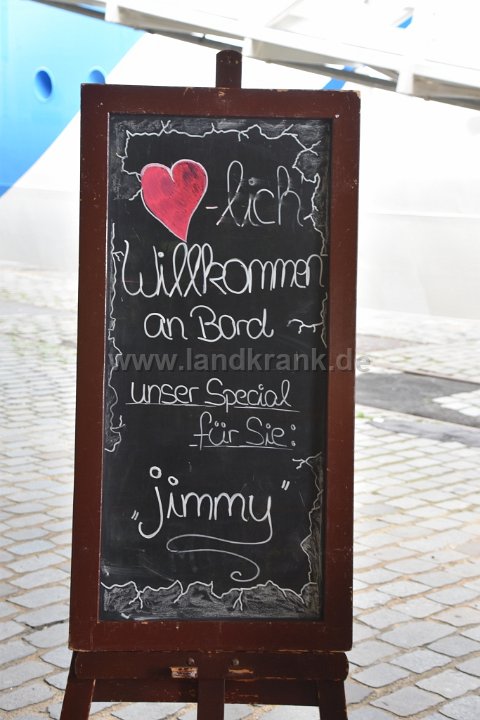 -lich
Willkommen
an Bord
www.landkrank.de
unser Special
für Sie:
„jimmy"